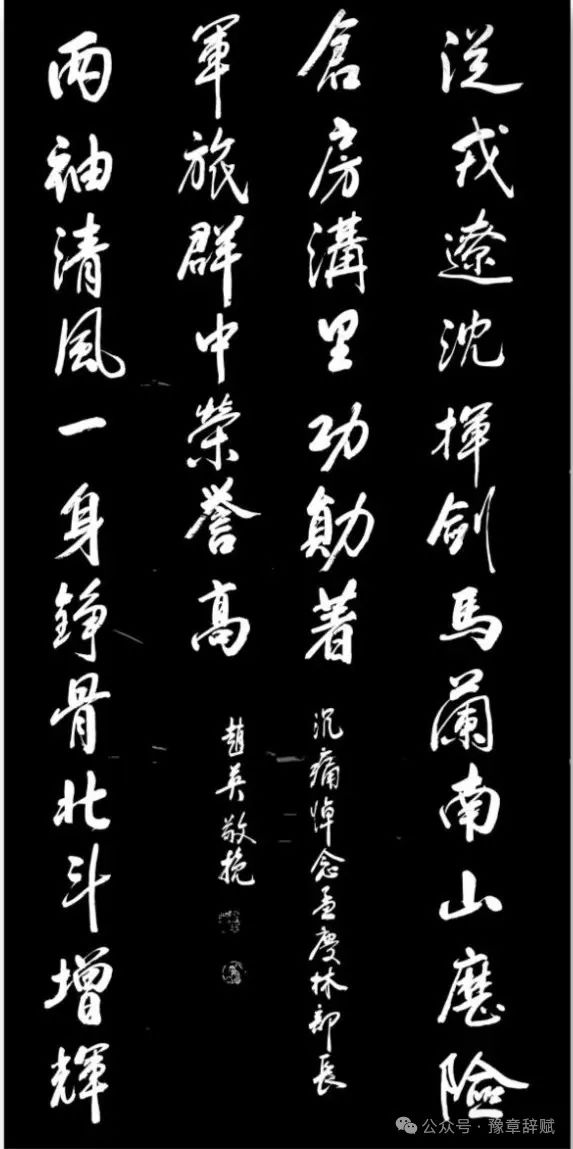 從戎遼沈揮劍馬蘭南山歷險
倉房溝里功勛著
沉痛悼念孟慶林部長
兩袖清風一身錚骨北斗增輝
軍旅群中榮譽高
趙英敬挽
公众号 · 豫章辞赋